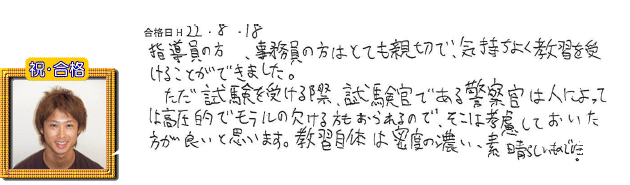 合格日 H 22.8.18
指導員の方、事務員の方はとても親切で、気持ちよく教習を受
けることができました。
ただ試験を受ける際、試験官である警察官は人によって
は高圧的でモラルの欠ける方もおられるので、そこは考慮しておいた
方が良いと思います。教習自体は密度の濃い、素晴らしい
祝・合格